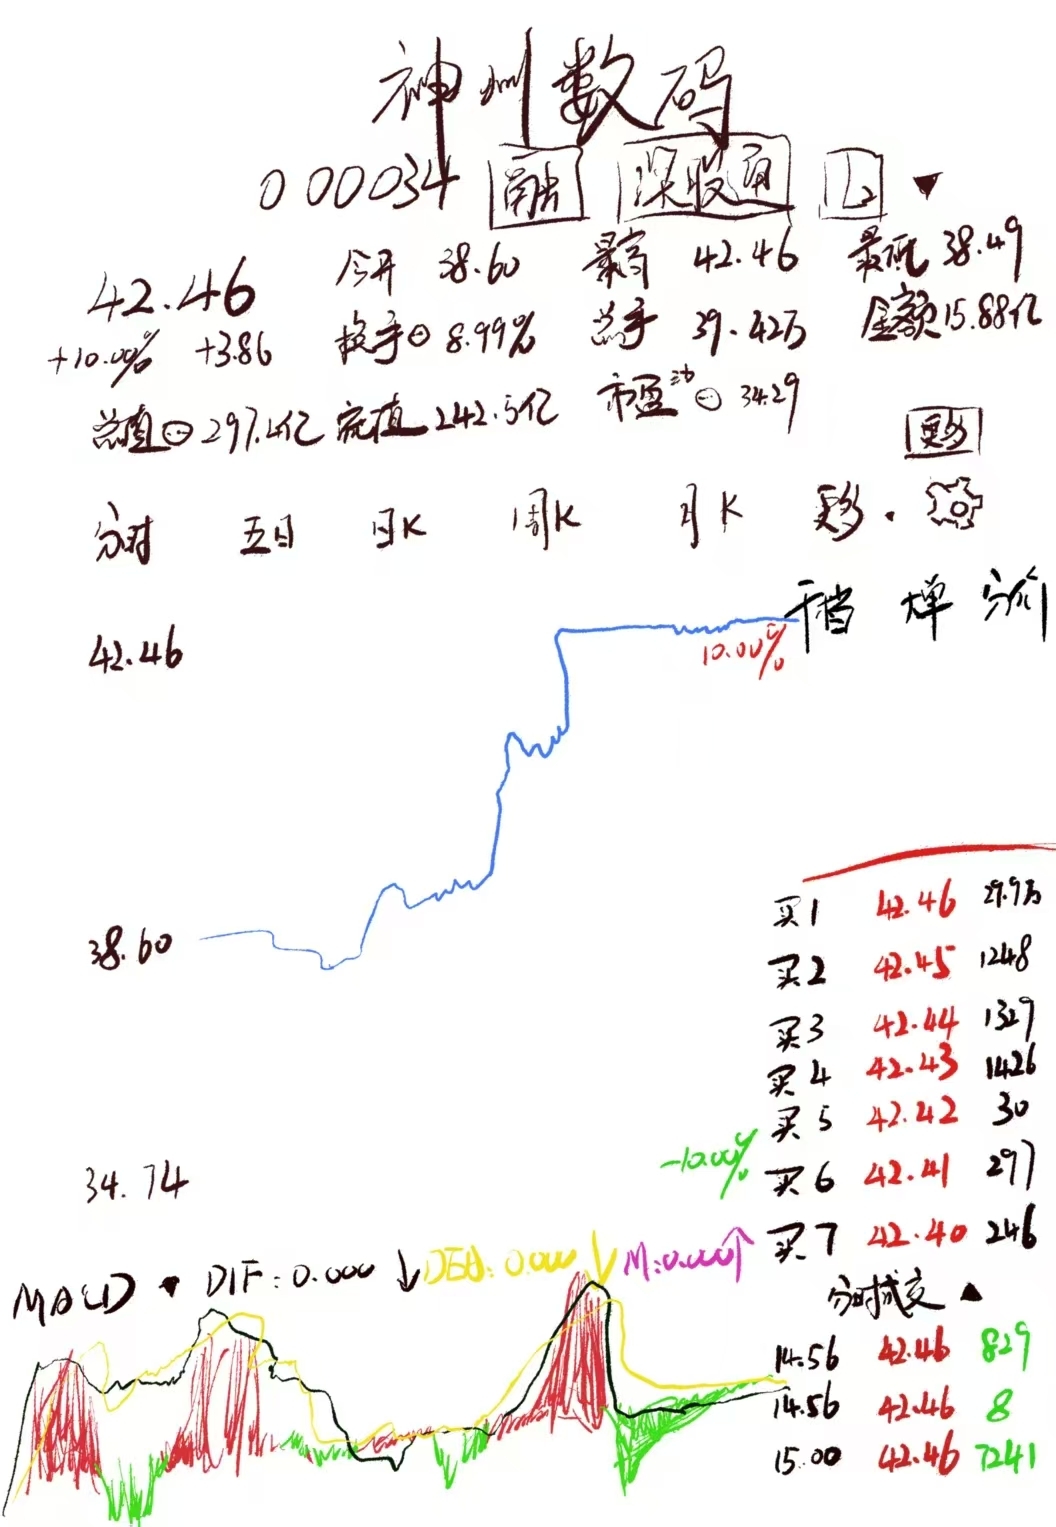 神州数码
000034 融 深股通 L2 ▼
42.46 今开 38.60 最高 42.46 最低 38.49
+10.00% +3.86 换手 8.99% 总手 39.42万 金额 15.88亿
总值 297.4亿 流值 242.5亿 市盈动 34.29
更多
分时 五日 日K 周K 月K 更多
千档 大单 分价
42.46
10.00%
38.60
买1 42.46 29.9万
买2 42.45 1248
买3 42.44 1329
买4 42.43 1426
买5 42.42 30
-10.00%
34.74
买6 42.41 297
买7 42.40 246
MACD ▼ DIF:0.000↓ DEA:0.000↓ M:0.000↑
分时成交 ▲
14:56 42.46 829
14:56 42.46 8
15:00 42.46 7241